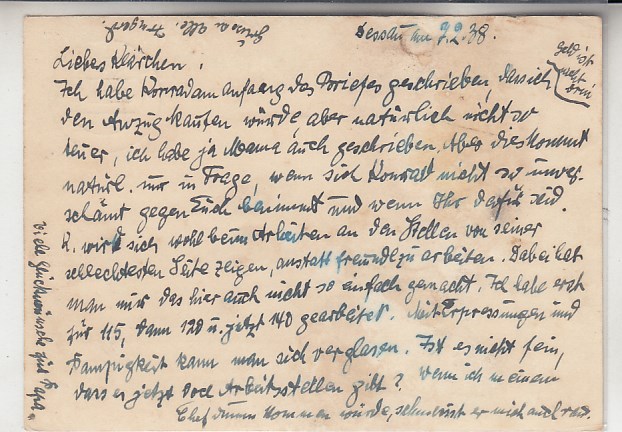 Dessau am 9.2.38.
Liebes Klärchen!
Ich habe Konrad am anfang des Briefes geschrieben, dass ich
den Anzug kaufen würde, aber natürlich nicht so
teuer, ich habe ja Mama auch geschrieben. Aber dies kommt
natürl. nur in Frage, wenn sich Konrad nicht so unver-
schämt gegen Euch benimmt und wenn Ihr dafür seid.
K. wird sich wohl beim Arbeiten an den Stellen von seiner
schlechtesten Seite zeigen, anstatt freundl. zu arbeiten. Dabei hat
man mir das hier auch nicht so einfach gemacht. Ich habe erst
für 115, dann 120 u. jetzt 140 gearbeitet. Mit Erpressungen und
Pampigkeit kann man sich
Ist es nicht fein,
dass es jetzt Arbeitsstellen gibt? Wenn ich meinem
Chef dumm kommen würde, schmeisst er mich auch raus.
viele Glückwünsche gibt Papa.
Grüsse alle.
Geld ist
nicht
drin